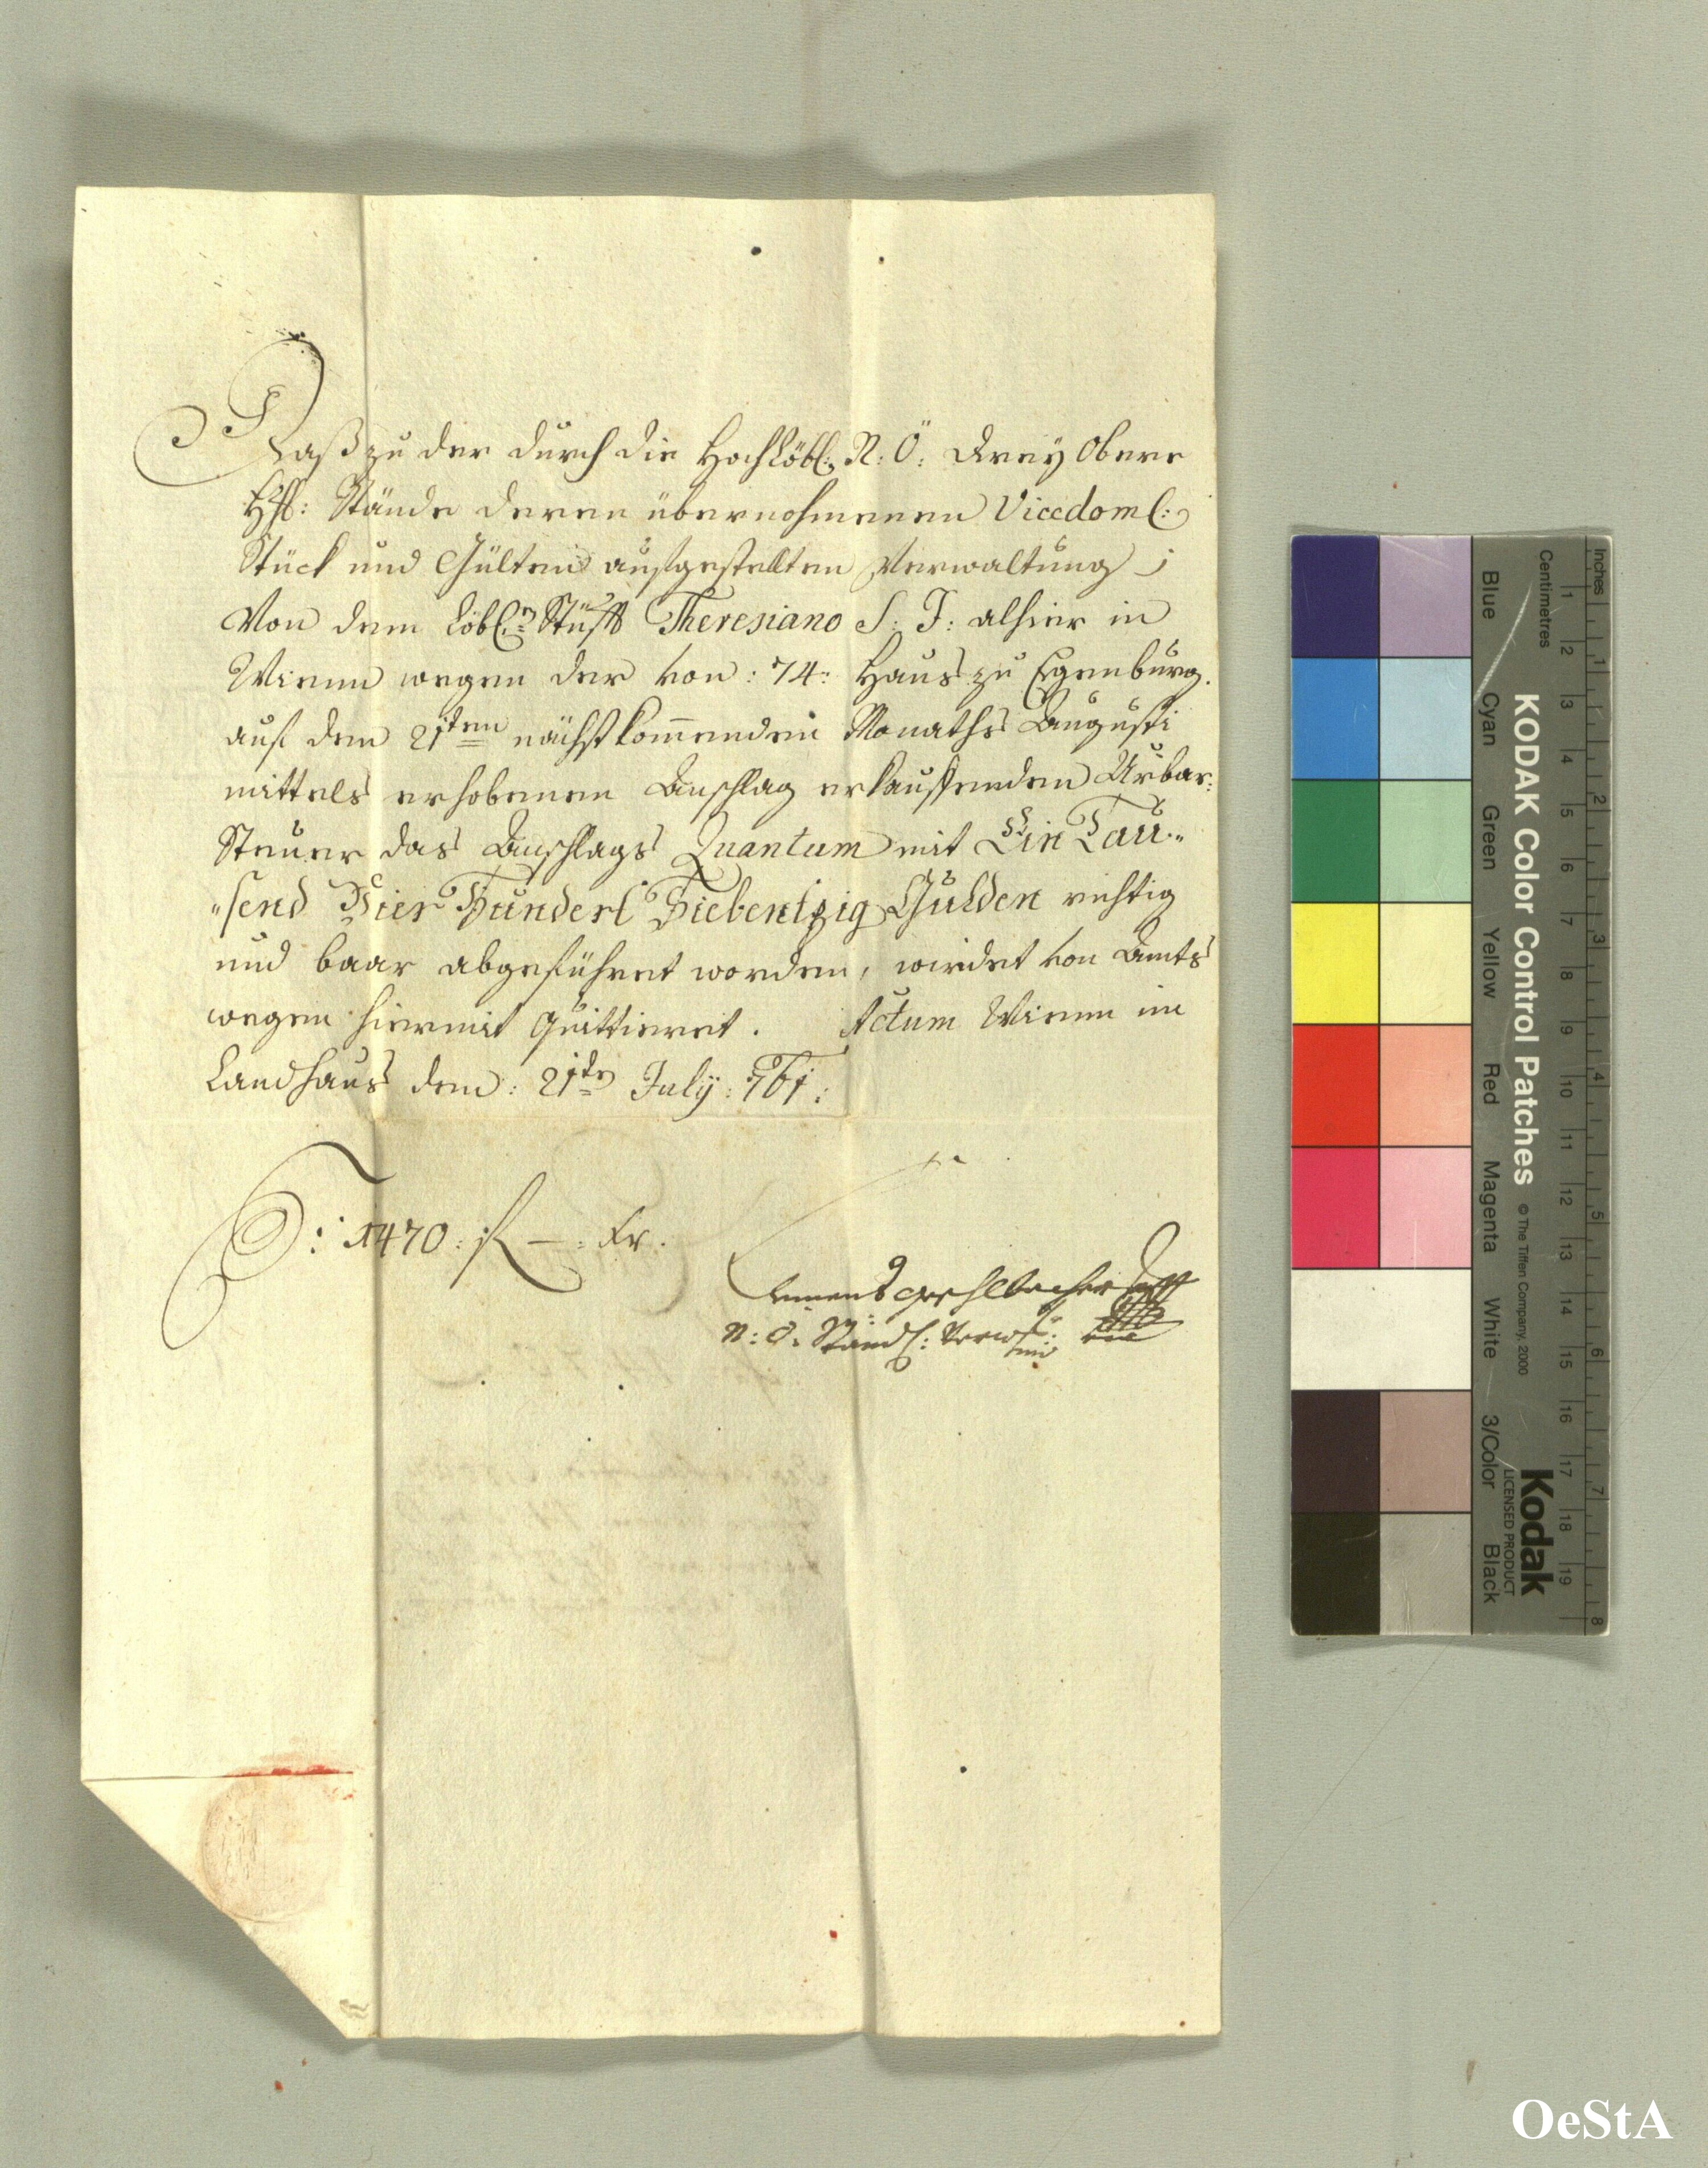 Daß zu der durch die Hochlöbl: N: Ö: drey Obere
H: Stände deren übernohmenen Vicedoml:
Stück und Gülten aufgestellten Verwaltung
Von dem Löbl:n Stüfft Theresiano S: J: alhier in
Wienn wegen der von: 74: Haus zu Egenburg.
auf den 21ten nächstkom̄enden Monaths Augusti
mittels erhobenen Anschlag erkauffenden Urbar:
Steuer das Anschlags Quantum mit Ein Tau„
„send Vier Hundert Siebentzig Gulden richtig
und baar abgeführet worden, wirdet von Amts
wegen hiermit quittieret. Actum Wienn im
Landhaus den: 21ten July: 761:
: 1470: f — : kr.
N: Ö: Ständl:
KODAK Color Control Patches
© The Tiffen Company, 2000
Kodak
LICENSED PRODUCT
Blue Cyan Green Yellow Red Magenta White 3/Color Black
Centimetres 1 2 3 4 5 6 7 8 9 10 11 12 13 14 15 16 17 18 19
Inches 1 2 3 4 5 6 7 8
OeStA